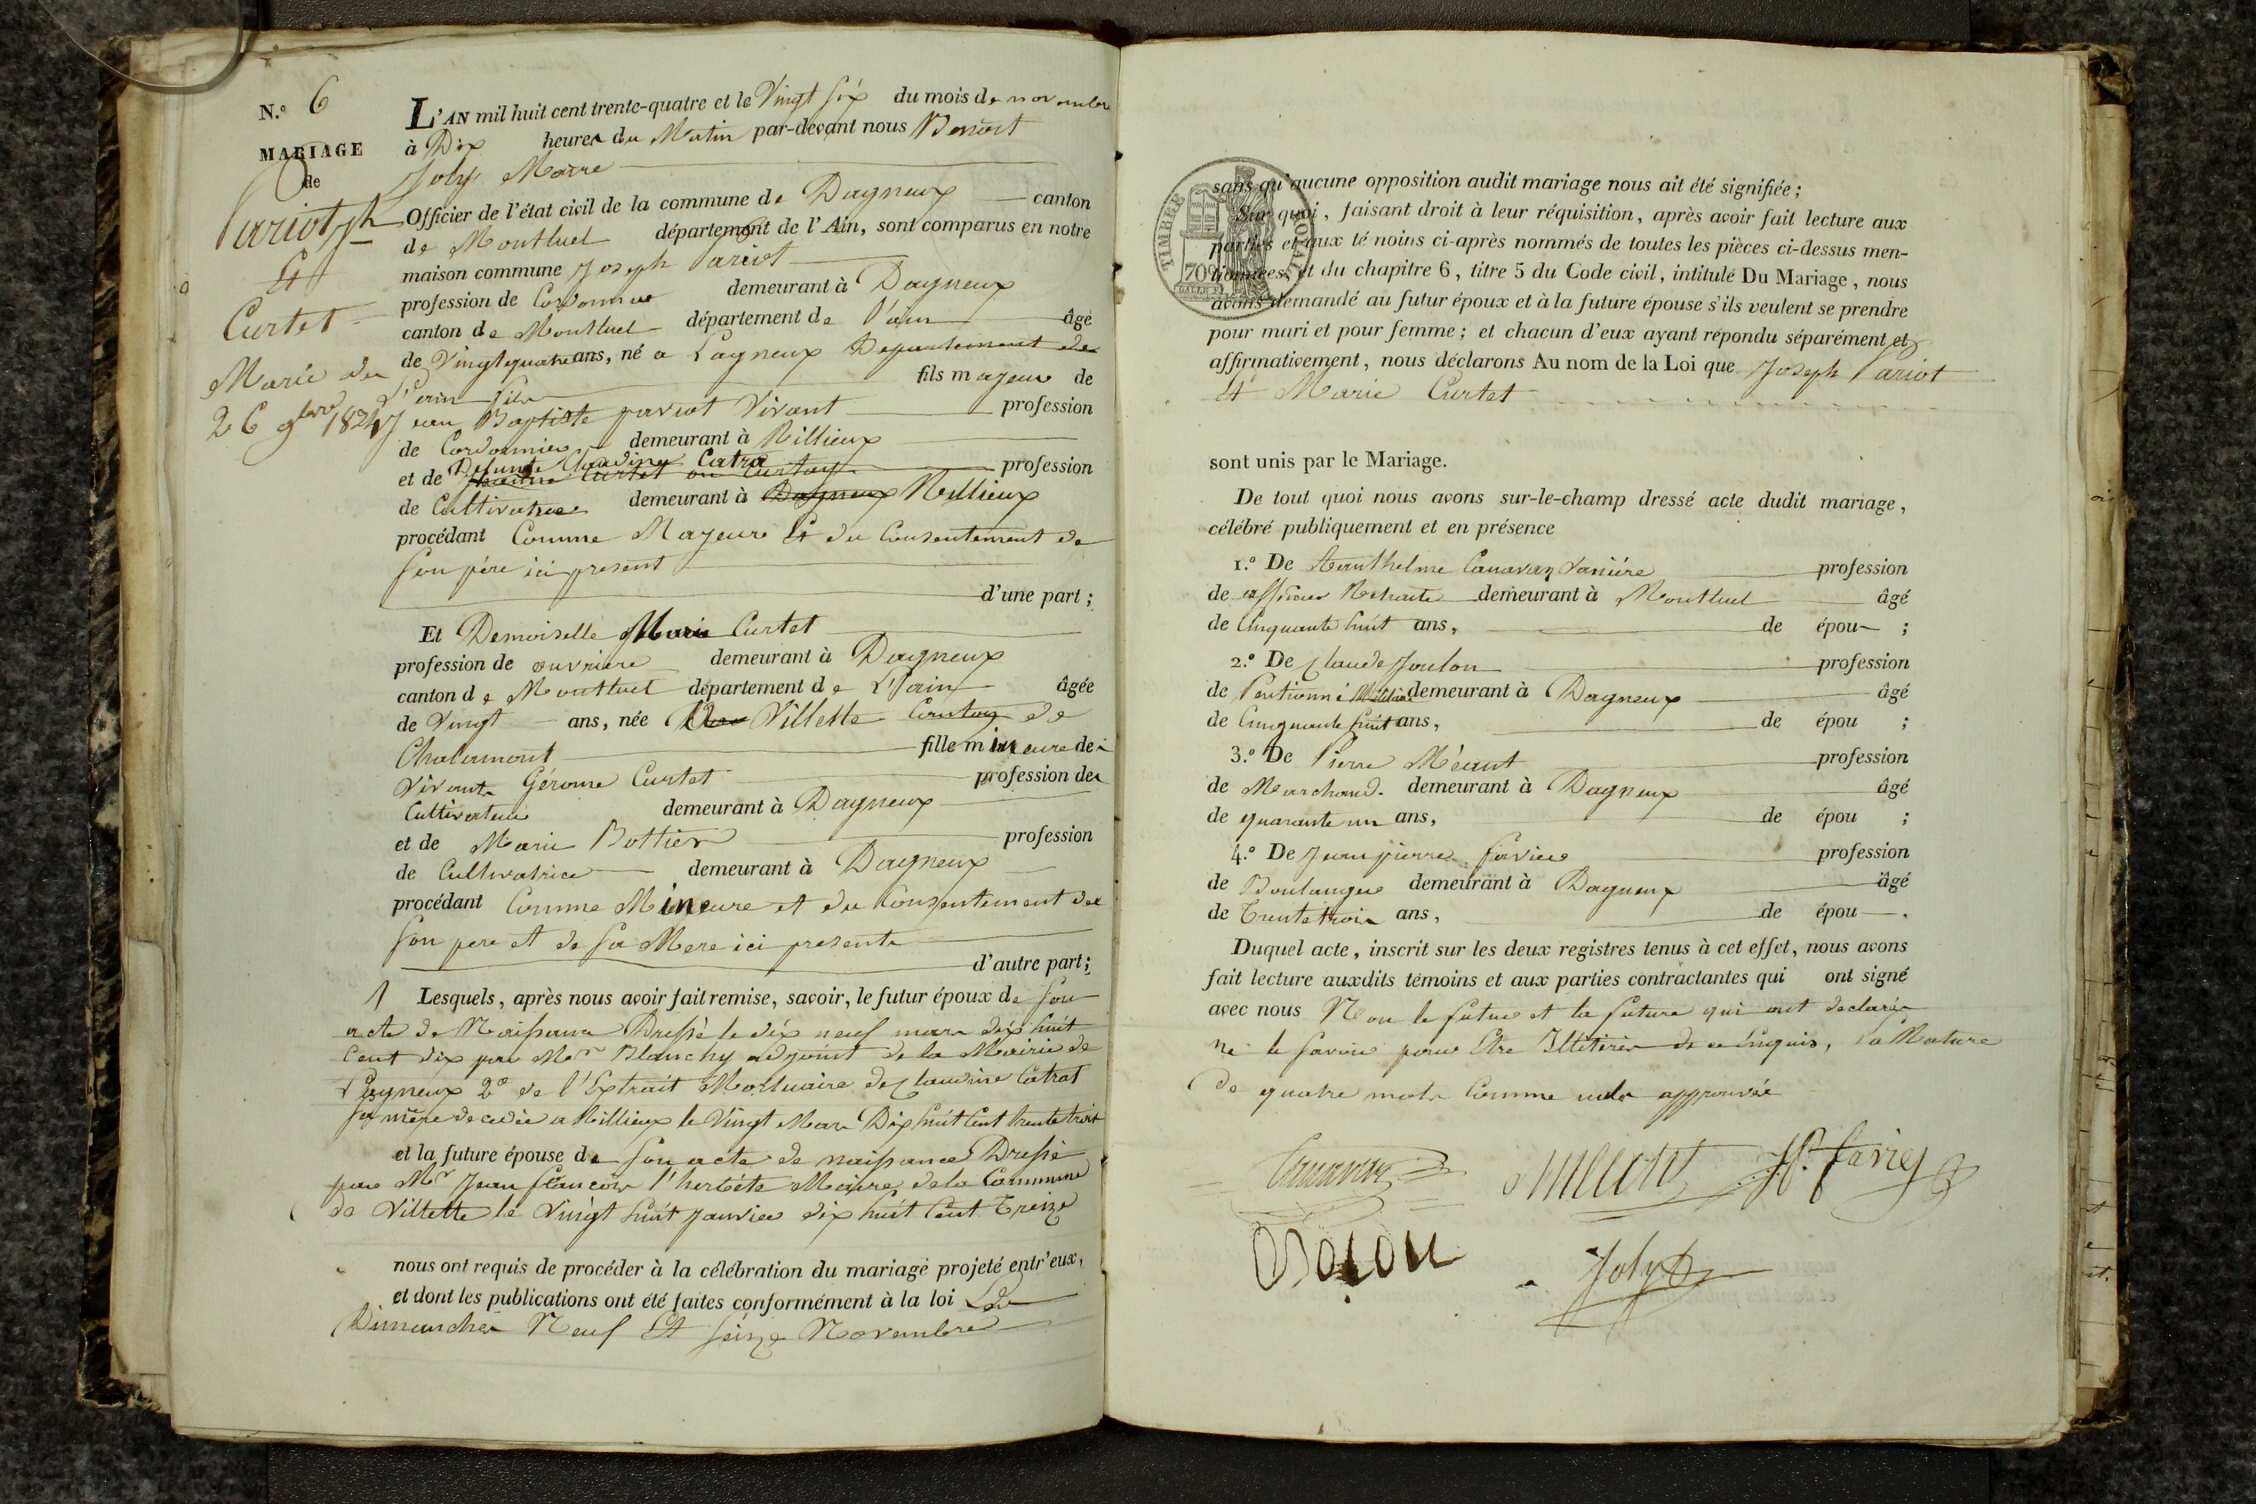 N.º 6
MARIAGE
de
Pariot jh
Et
Curtet
Marié du
26 9bre 1834
L'AN mil huit cent trente-quatre et le Vingt six du mois de novembre
à Dix heures du Matin par-devant nous Benoit
Joly Maire
Officier de l'état civil de la commune de Dagneux canton
de Montluel département de l'Ain, sont comparus en notre
maison commune Joseph Pariot
profession de Cordonnier demeurant à Dagneux
canton de Montluel département de l'ain âgé
de Vingtquatre ans, né a Lagneux Departement de
L'ain fils fils majeur de
Jean Baptiste pariot Vivant profession
de Cordonnier demeurant à Rillieux
et de Defunte Claudine Catra profession
de Cultivatrice demeurant à Dagneux Rillieux
procédant Comme Majeure Et du Consentement de
son père ici present
d'une part ;
Et Demoiselle Marie Curtet
profession de ouvriere demeurant à Dagneux
canton de Montluel département de L'ain âgée
de Vingt ans, née Villette Canton de
Chalamont fille mineure de
Vivants Gérome Curtet profession de
Cultivateur demeurant à Dagneux
et de Marie Bottier profession
de Cultivatrice demeurant à Dagneux
procédant Comme Mineure et du Consentement de
son pere et de sa Mere ici presents
d'autre part ;
1 Lesquels, après nous avoir fait remise, savoir, le futur époux de son
acte de Naissance Dressé le dix neuf mars dix huit
Cent dix par Mr Blanchy adjoint de la Mairie de
Lagneux 2º de l'Extrait Mortuaire de Claudine Catrat
sa mère decedée a Rillieux le Vingt Mars Dix huit Cent trente trois
et la future épouse de son acte de naissance Dressé
par Mr Jean francois l'herbéte Maire de la Commune
de Villette le Vingt huit janvier dix huit Cent Treize
nous ont requis de procéder à la célébration du mariage projeté entr'eux,
et dont les publications ont été faites conformément à la loi Les
Dimanches Neuf Et seize Novembre
TIMBRE ROYAL
70
sans qu'aucune opposition audit mariage nous ait été signifiée ;
Sur quoi, faisant droit à leur réquisition, après avoir fait lecture aux
parties et aux témoins ci-après nommés de toutes les pièces ci-dessus men-
tionnées, et du chapitre 6, titre 5 du Code civil, intitulé Du Mariage, nous
avons demandé au futur époux et à la future épouse s'ils veulent se prendre
pour mari et pour femme ; et chacun d'eux ayant répondu séparément et
affirmativement, nous déclarons Au nom de la Loi que Joseph Pariot
Et Marie Curtet
sont unis par le Mariage.
De tout quoi nous avons sur-le-champ dressé acte dudit mariage,
célébré publiquement et en présence
1.º De Anthelme Canavaz profession
de officier Retraité demeurant à Montluel âgé
de Cinquante huit ans, de épou ;
2.º De Claude profession
de Pentionné Militaire demeurant à Dagneux âgé
de Cinquante huit ans, de épou ;
3.º De Pierre Méant profession
de Marchand. demeurant à Dagneux âgé
de quarante un ans, de épou ;
4.º De Jean pierre favier profession
de Boulanger demeurant à Dagneux âgé
de Trente trois ans, de épou .
Duquel acte, inscrit sur les deux registres tenus à cet effet, nous avons
fait lecture auxdits témoins et aux parties contractantes qui ont signé
avec nous Non le futur et la future qui ont declarés
ne le savoir pour Etre Illitirés de ce Enquis, la Rature
de quatre mots Comme nuls approuvée
Canavaz Méant Jp. favier
Joly